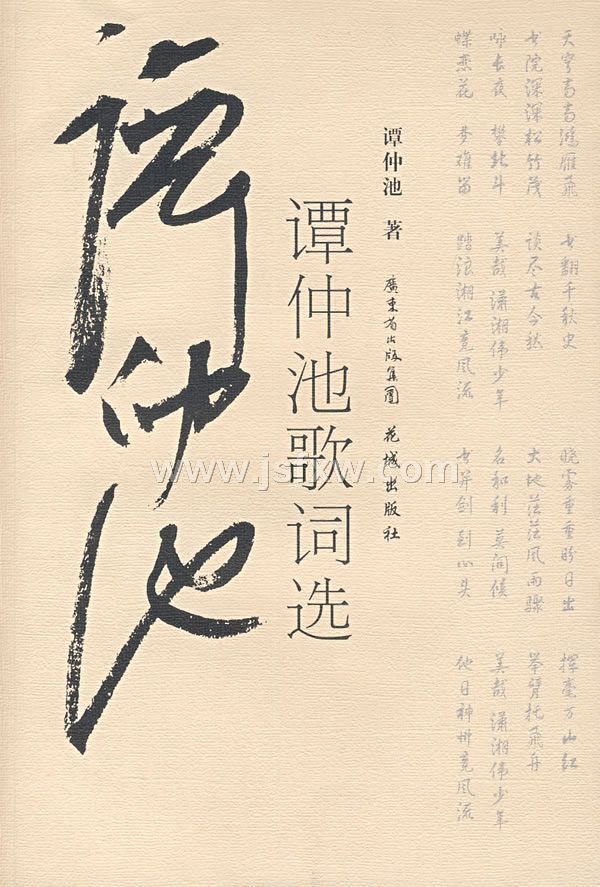 谭仲池
谭仲池歌词选
谭仲池 著
廣東省出版集團 花城出版社
天穹高高鸿雁飞
书院深深松竹茂
咏长夜 攀北斗
蝶恋花 梦难留
书翻千秋史
谈尽古今愁
美哉 潇湘伟少年
踏浪湘江竞风流
晓雾重重盼日出
大地茫茫风雨骤
名和利 莫问候
书并剑 到心头
挥毫万山红
举臂托飞舟
美哉 潇湘伟少年
他日神州竞风流
www.jslxw.com